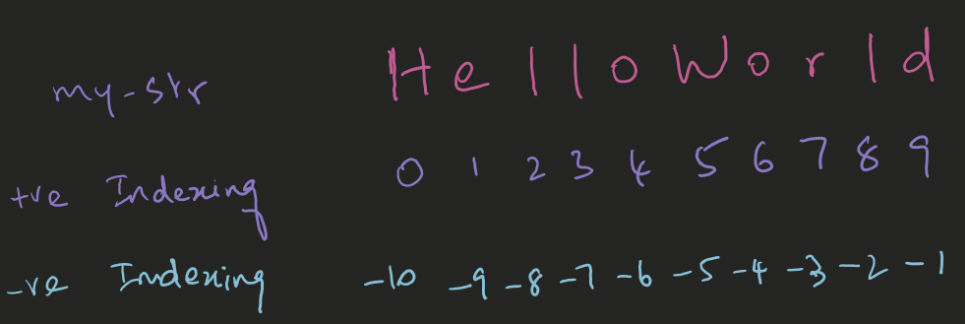 my-str H e l l o W o r l d
+ve Indexing 0 1 2 3 4 5 6 7 8 9
-ve Indexing -10 -9 -8 -7 -6 -5 -4 -3 -2 -1